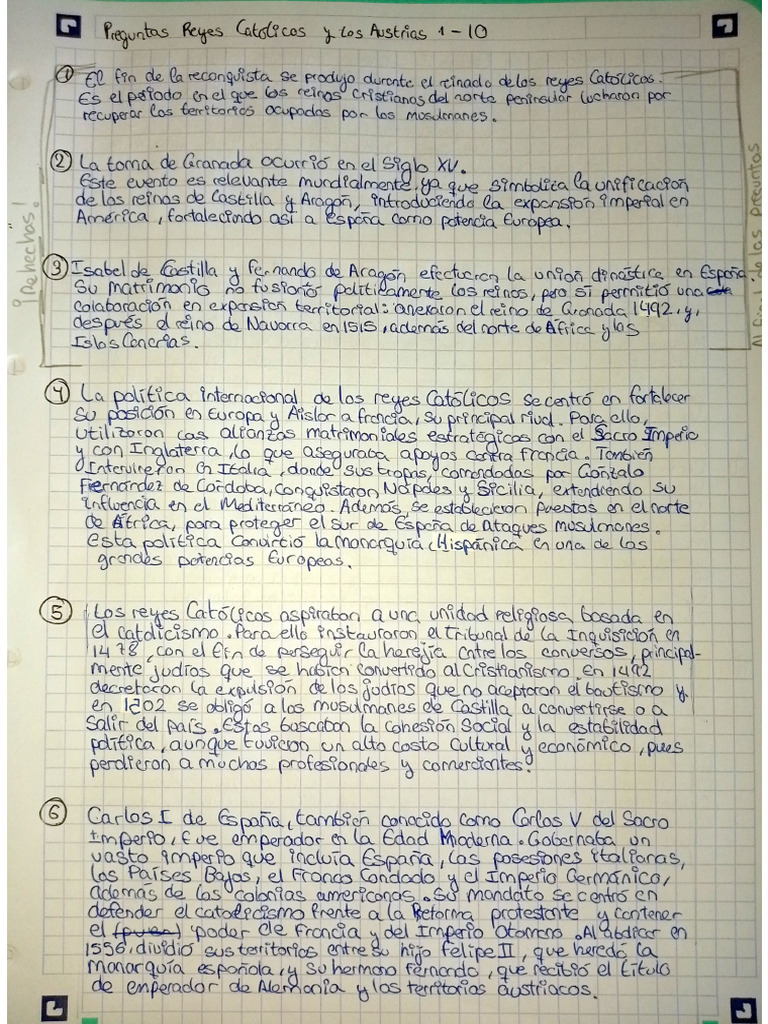 Preguntas Reyes Católicos y los Austrias 1-10
① El fin de la reconquista se produjo durante el reinado de los reyes Católicos.
Es el periodo en el que los reinos cristianos del norte peninsular lucharon por
recuperar los territorios ocupados por los musulmanes.
② La toma de Granada ocurrió en el Siglo XV.
Este evento es relevante mundialmente, ya que simboliza la unificación
de los reinos de Castilla y Aragón, introduciendo la expansión imperial en
América, fortaleciendo así a España como potencia Europea.
③ Isabel de Castilla y Fernando de Aragón efectuaron la unión dinástica en España.
Su matrimonio no fusionó políticamente los reinos, pero sí permitió una
colaboración en expansión territorial: anexaron el reino de Granada 1492, y,
después el reino de Navarra en 1515, además del norte de África y las
Islas Canarias.
¡Rehechas!
Al final de las preguntas
④ La política internacional de los reyes Católicos se centró en fortalecer
su posición en Europa y Aislar a francia, su principal rival. Para ello,
utilizaron las alianzas matrimoniales estratégicas con el Sacro Imperio
y con Inglaterra, lo que aseguraba apoyos contra Francia. También
Intervinieron en Italia, donde sus tropas, comandadas por Gonzalo
Fernández de Córdoba, conquistaron Nápoles y Sicilia, extendiendo su
influencia en el Mediterráneo. Además, se establecieron puestos en el norte
de África, para proteger el sur de España de ataques musulmanes.
Esta política convirtió la monarquía Hispánica en una de las
grandes potencias Europeas.
⑤ Los reyes Católicos aspiraban a una unidad religiosa basada en
el catolicismo. Para ello instauraron el tribunal de la Inquisición en
1478, con el fin de perseguir la herejía entre los conversos, principal-
mente judíos que se habían convertido al Cristianismo. En 1492
decretaron la expulsión de los judíos que no aceptaron el bautismo y
en 1502 se obligó a los musulmanes de Castilla a convertirse o a
salir del país. Estas buscaban la cohesión social y la estabilidad
política, aunque tuvieron un alto costo cultural y económico, pues
perdieron a muchos profesionales y comerciantes.
⑥ Carlos I de España, también conocido como Carlos V del Sacro
Imperio, fue emperador en la Edad Moderna. Gobernaba un
vasto imperio que incluía España, las posesiones italianas,
los Países Bajos, el Franco Condado y el Imperio Germánico,
además de las colonias americanas. Su mandato se centró en
defender el catolicismo frente a la Reforma protestante y contener
el poder de Francia y del Imperio Otomano. Al abdicar en
1556, dividió sus territorios entre su hijo Felipe II, que heredó la
monarquía española, y su hermano Fernando, que recibió el título
de emperador de Alemania y los territorios austriacos.